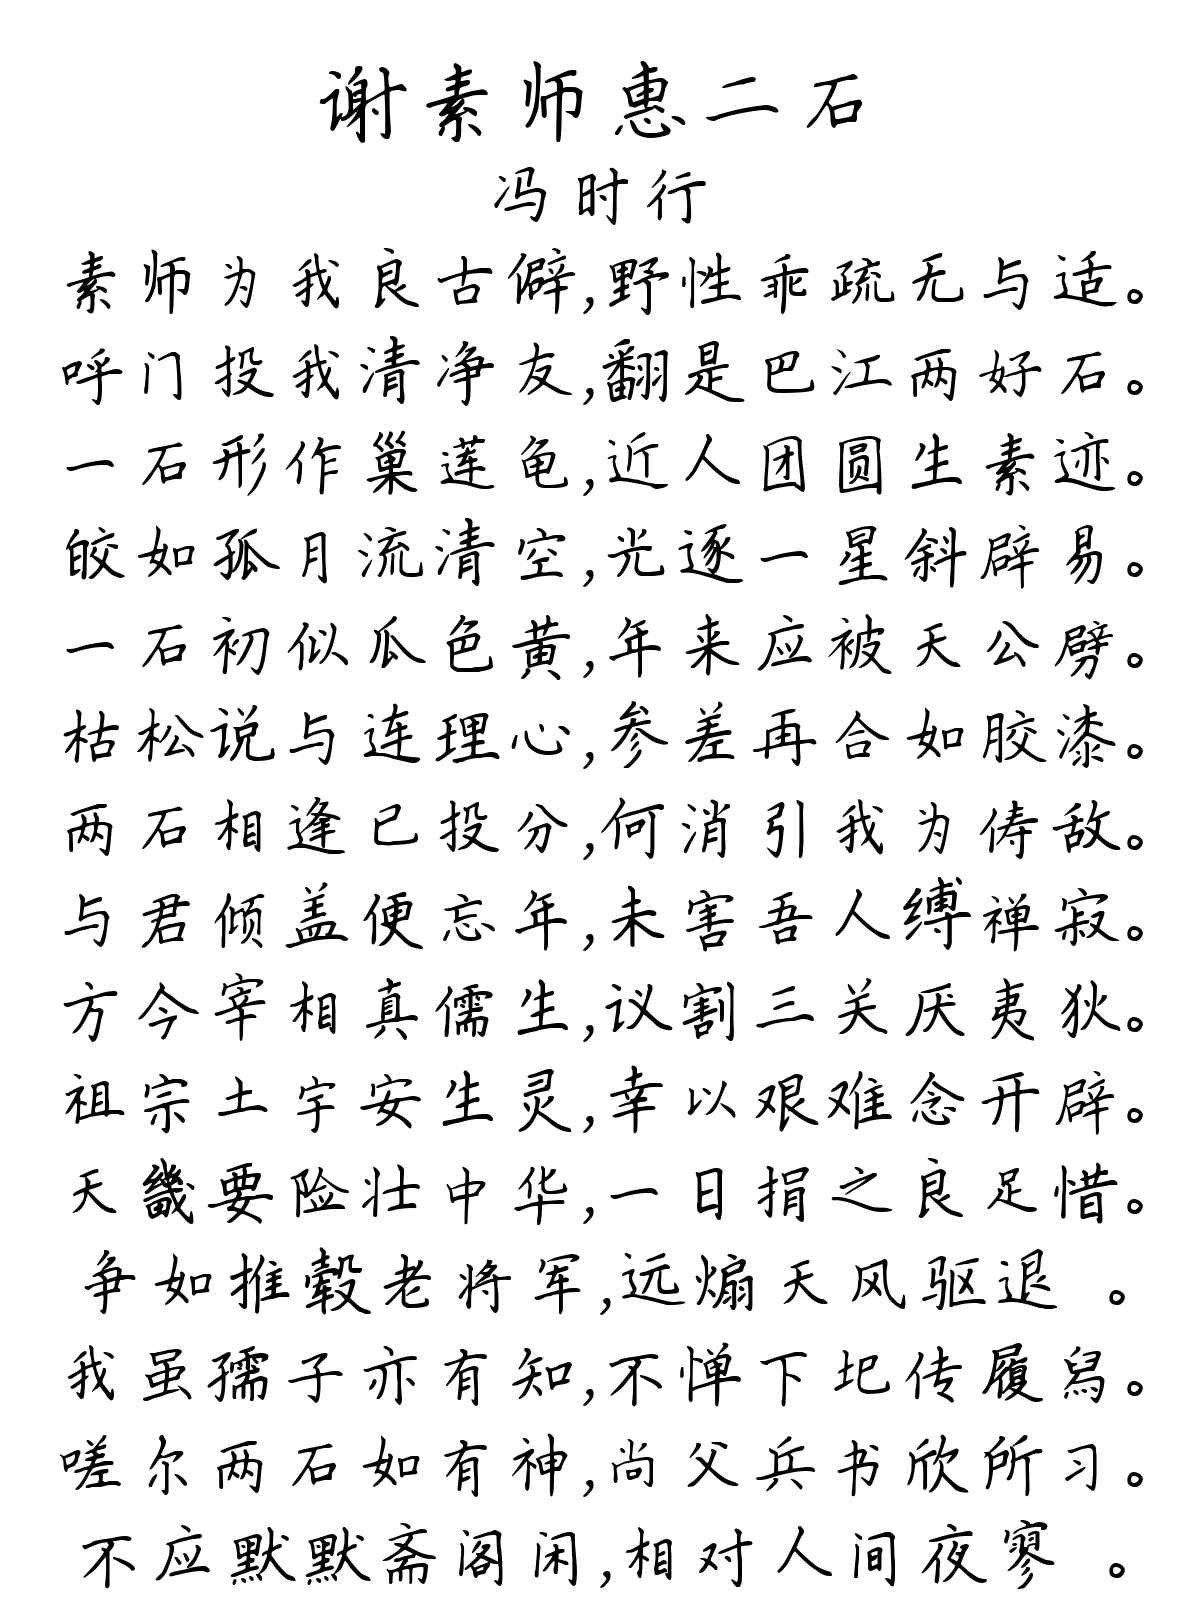 谢素师惠二石
冯时行
素师为我良古僻,野性乖疏无与适。
呼门投我清净友,翻是巴江两好石。
一石形作巢莲龟,近人团圆生素迹。
皎如孤月流清空,光逐一星斜辟易。
一石初似瓜色黄,年来应被天公劈。
枯松说与连理心,参差再合如胶漆。
两石相逢已投分,何消引我为俦敌。
与君倾盖便忘年,未害吾人缚禅寂。
方今宰相真儒生,议割三关厌夷狄。
祖宗土宇安生灵,幸以艰难念开辟。
天畿要险壮中华,一日捐之良足惜。
争如推毂老将军,远煽天风驱退 。
我虽孺子亦有知,不惮下圯传履舄。
嗟尔两石如有神,尚父兵书欣所习。
不应默默斋阁闲,相对人间夜寥 。